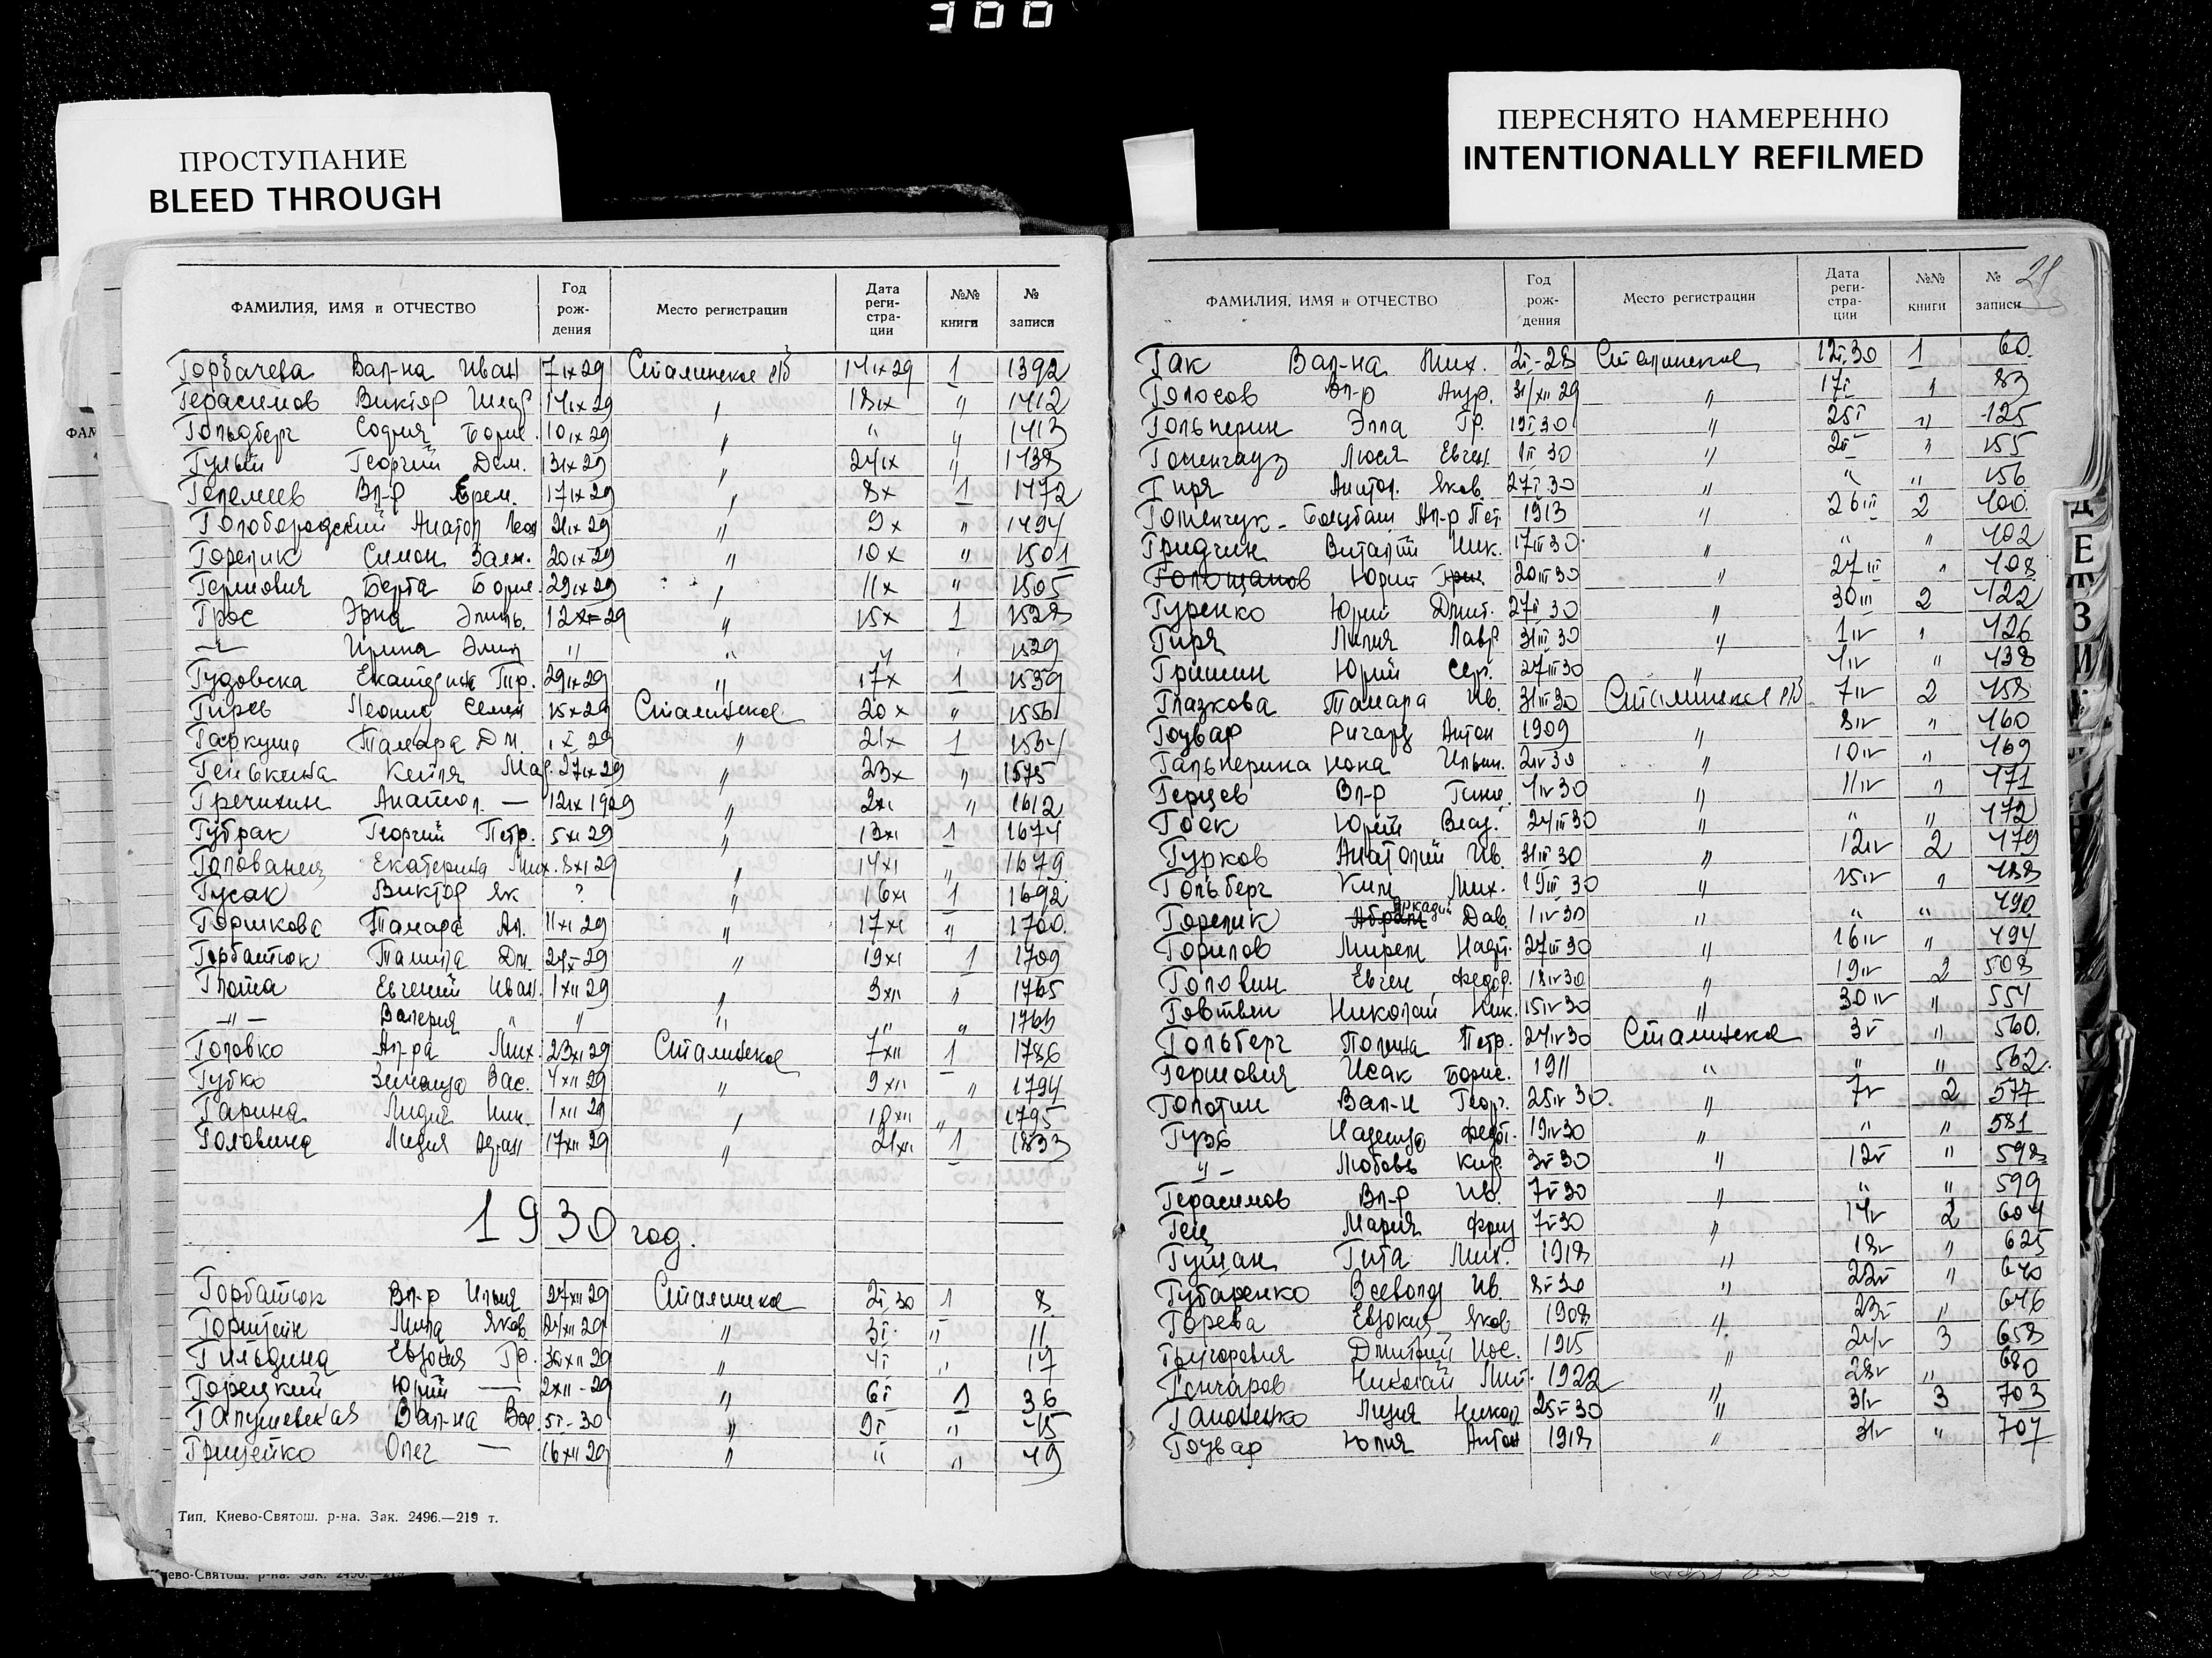 300
ПРОСТУПАНИЕ
BLEED THROUGH
ПЕРЕСНЯТО НАМЕРЕННО
INTENTIONALLY REFILMED
ФАМИЛИЯ, ИМЯ и ОТЧЕСТВО Год рож- дения Место регистрации Дата реги- стра- ции №№ книги № записи
Горбачева Вал-на Иван 7 IX 29 Сталинское 14 IX 29 1 1392
Герасимов Виктор 14 IX 29 " 18 IX " 1412
Гольдберг София Борис. 10 IX 29 " " " 1413
Гулый Георгий Дем. 13 IX 29 " 24 IX " 1438
Вл-р Ерем. 17 IX 29 " 8 X 1 1472
Голобородский Анатол 21 IX 29 " 9 X " 1494
Горелик Симон Залм. 20 IX 29 " 10 X " 1501
Гершович Берта Борис. 29 IX 29 " 11 X " 1505
Грос Эрна Эмиль. 12 X 29 " 15 X 1 1528
—"— Ирина Эмил " " " 1529
Гудовска Екатерина Гр. 29 IX 29 " 17 X 1 1539
Гирев Леонид Семен 15 X 29 Сталинское 20 X " 1556
Гаркуша Тамара Дм. 1 X 29 " 21 X 1 1564
Генькина Мар. 27 IX 29 " 23 X " 1575
Гречихин Анатол. — 12 IX 1929 " 2 XI " 1612
Губрак Георгий Петр. 5 XI 29 " 13 XI 1 1674
Голованец Екатерина Мих. 8 XI 29 " 14 XI " 1679
Гусак Виктор Як ? " 16 XI 1 1692
Горшкова Тамара Ал. 11 XI 29 " 17 XI " 1700
Горбатюк Дм. 24 X 29 " 19 XI 1 1709
Глота Евгений Иван. 1 XII 29 " 3 XII " 1765
—"— Валерия " " " " " 1766
Головко Ал-ра Мих. 23 XI 29 Сталинское 7 XII 1 1786
Губко Зинаида Вас. 4 XII 29 " 9 XII " 1794
Гарина Лидия Ник. 1 XII 29 " 10 XII " 1795
Головина Лидия 17 XII 29 " 21 XII 1 1833
1930 год.
Горбатюк Вл-р Илья 27 XII 29 Сталинское 2 I 30 1 8
Горштейн Мила Яков 24 XII 29 " 3 I " 11
Гильдина Евдокия Гр. 30 XII 29 " 4 I " 17
Горецкий Юрий — 2 XII - 29 " 6 I 1 36
Галушевская Вал-на 5 I - 30 " 9 I " 45
Грищенко Олег — 16 XII 29 " " " 49
Тип. Киево-Святош. р-на. Зак. 2496.—219 т.
ФАМИЛИЯ, ИМЯ и ОТЧЕСТВО Год рож- дения Место регистрации Дата реги- стра- ции №№ книги № записи
Гак Вал-на Мих. 2 I - 28 Сталинское 12 I 30 1 60
Голосов Вл-р Андр. 31/XII 29 " 17 I " 83
Гольперин Элла Гр. 19 I 30 " 25 I " 125
Люся Евген. 1 II 30 " 2 II " 155
Гиря Анатол. Яков. 27 I 30 " " " 156
Ал-р Пет. 1913 " 26 III 2 400
Гридчин Виталий Ник. 17 III 30 " " " 402
Голощапов Юрий 20 III 30 " 27 III " 408
Гуренко Юрий Дмит. 27 II 30 " 30 III 2 422
Гиря Лилия Лавр 31 III 30 " 1 IV " 426
Гришин Юрий Серг. 27 III 30 " 4 IV " 438
Глазкова Тамара Ив. 31 III 30 Сталинское 7 IV 2 458
Гоувар Ричард Антон 1909 " 8 IV " 460
Гальперина Нона Ильин. 2 IV 30 " 10 IV " 469
Герцев Вл-р 4 IV 30 " 11 IV " 471
Гоок Юрий Влад. 24 III 30 " " " 472
Гурков Анатолий Ив. 31 III 30 " 12 IV 2 479
Гольберг Ким Мих. 19 III 30 " 15 IV " 488
Горелик Абрам Аркадий Дав. 1 IV 30 " " " 490
Горилов Мирен 27 III 30 " 16 IV " 494
Головин Евген Федор. 18 IV 30 " 19 IV 2 508
Говтвен Николай Ник. 15 IV 30 " 30 IV " 554
Гольберг Полина Петр. 24 IV 30 Сталинское 3 V " 560
Гершович Исак Борис. 1911 " " " 562
Голотин Вал-н Георг. 25 IV 30. " 7 V 2 577
Гузь Надежда Федот. 19 IV 30 " " " 581
"— Любовь Кир. 3 V 30 " 12 V " 598
Герасимов Вл-р Ив. 7 V 30 " " " 599
Гец Мария Фриц 7 V 30 " 14 V 2 604
Гуйман Гита Мих. 1918 " 18 V " 625
Губаренко Всеволод Ив. 8 V 30 " 22 V " 640
Горева Евдокия Яков 1908 " 23 V " 646
Григорович Дмитрий Иос. 1915 " 24 V 3 658
Гончаров Николай Мит. 1922 28 V " 680
Гапоненко Лидия Никол 25 V 30 " 31 V 3 703
Гоувар Юлия Антон 1918 " 31 V " 707